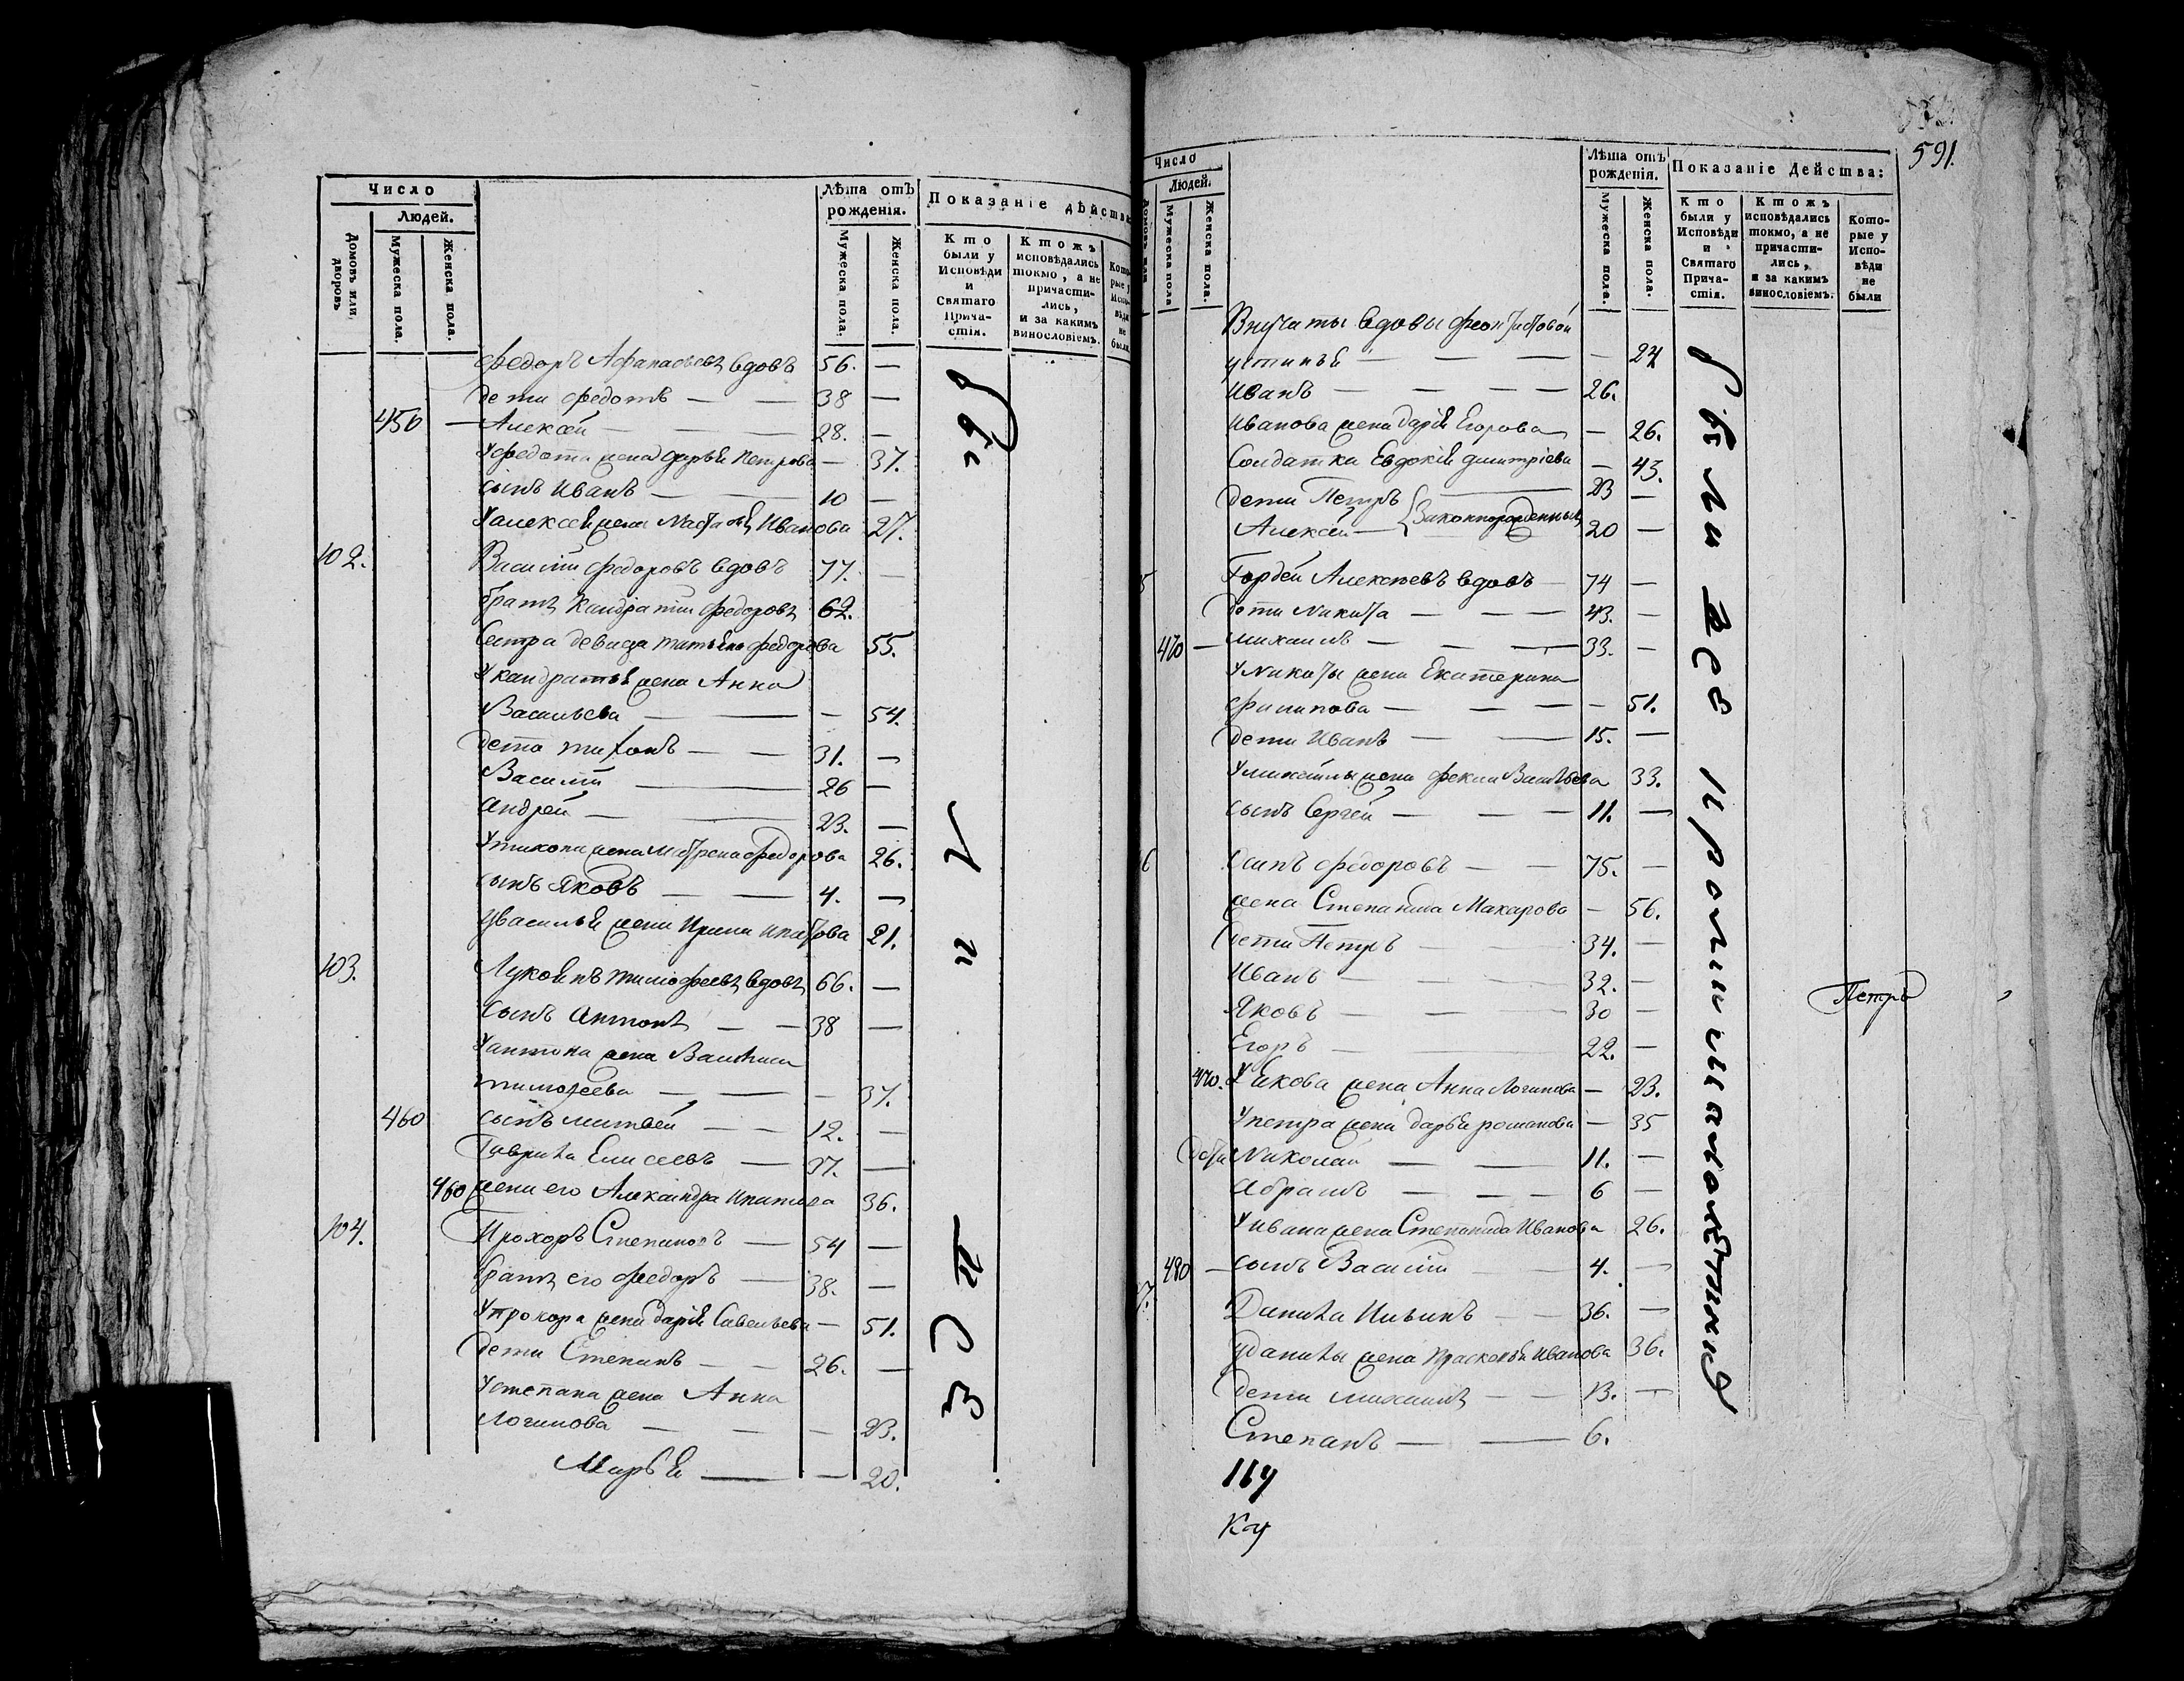 Число
Людей.
Домовъ или дворовъ
Мужеска пола.
Женска пола.
Лѣта отъ рожденія.
Мужеска пола.
Женска пола.
Показаніе дѣйства
Кто были у Исповѣди и Святаго Причастія.
Ктожъ исповѣдались токмо, а не причастились, и за какимъ винословіемъ.
Федоръ Афанасьевъ вдовъ 56. —
дети Федотъ — — 38 —
450 — Алексѣй — — 28. —
У Федота жена Дарья Петрова — 37.
сынъ Иванъ — — 10 —
У алексея жена Иванова 27.
102. Василий Федоровъ вдовъ 77. —
братъ Кандратий Федоровъ 62.
Сестра девица татьяна Федорова 55.
У кандратья жена Анна
Васильева — — — 54.
дети тихонъ — — 31. —
Василій — 26 —
андрей — — 23. —
У тихона жена матрена Федорова 26.
сынъ Яковъ — — 4. —
У василья жена Ирина ипатова 21.
103. Лукоянъ тимофеевъ вдовъ 66. —
сынъ антонъ — — 38 —
У антона жена Василиса
тимофеева — — — 37.
460 сынъ матвей — — 12. —
Гаврила Елисеевъ — 37. —
460 жена его Александра ипатова 36.
104. Прохоръ Степановъ — 54 —
братъ его Федоръ — 38. —
У прохора жена дарія Савельева — 51.
дети Степанъ — — 26. —
У степана жена Анна
Логинова — — — 23.
Марья — — 20.
Число
Людей.
Мужеска пола
Женска пола.
Лѣта отъ рожденія.
Мужеска пола.
Женска пола.
Показаніе Действа:
Кто были у Исповѣди и Святаго Причастія.
Ктожъ исповѣдались токмо, а не причастились, и за какимъ винословіемъ.
Которые у Исповѣди не были
591.
Внучаты вдовы
устинья — — — — 24
Иванъ — — — — 26.
Иванова жена дарія Егорова — 26.
Солдатка Евдокія димитріева — 43.
дети Петръ — 23 —
Алексѣй — 20 —
Гордѣй Алексѣевъ вдовъ — 74 —
дети Никита — — — 43. —
470 — михаилъ — — — 33. —
У Никиты жена Екатерина
Филипова — — — — 51.
дети Иванъ — — 15. —
У михайлы жена Фекла Васильева 33.
сынъ Сергей — — — 11. —
6 Осипъ Федоровъ — — 75. —
жена Степанида Макарова — 56.
дети Петръ — — 34. —
Иванъ — — — 32. —
Петръ
Яковъ — — — 30 —
Егоръ — 22. —
470. У якова жена Анна Логинова — 23.
У петра жена дарья романова — 35
дети Николай — — 11. —
абрамъ — — — 6 —
У ивана жена Степанида Иванова 26.
480 — сынъ Василій — — 4. —
7. Данила Ильинъ — — 36. —
У данилы жена Прасковья иванова 36.
дети михаилъ — — 13. —
Степанъ — — 6.